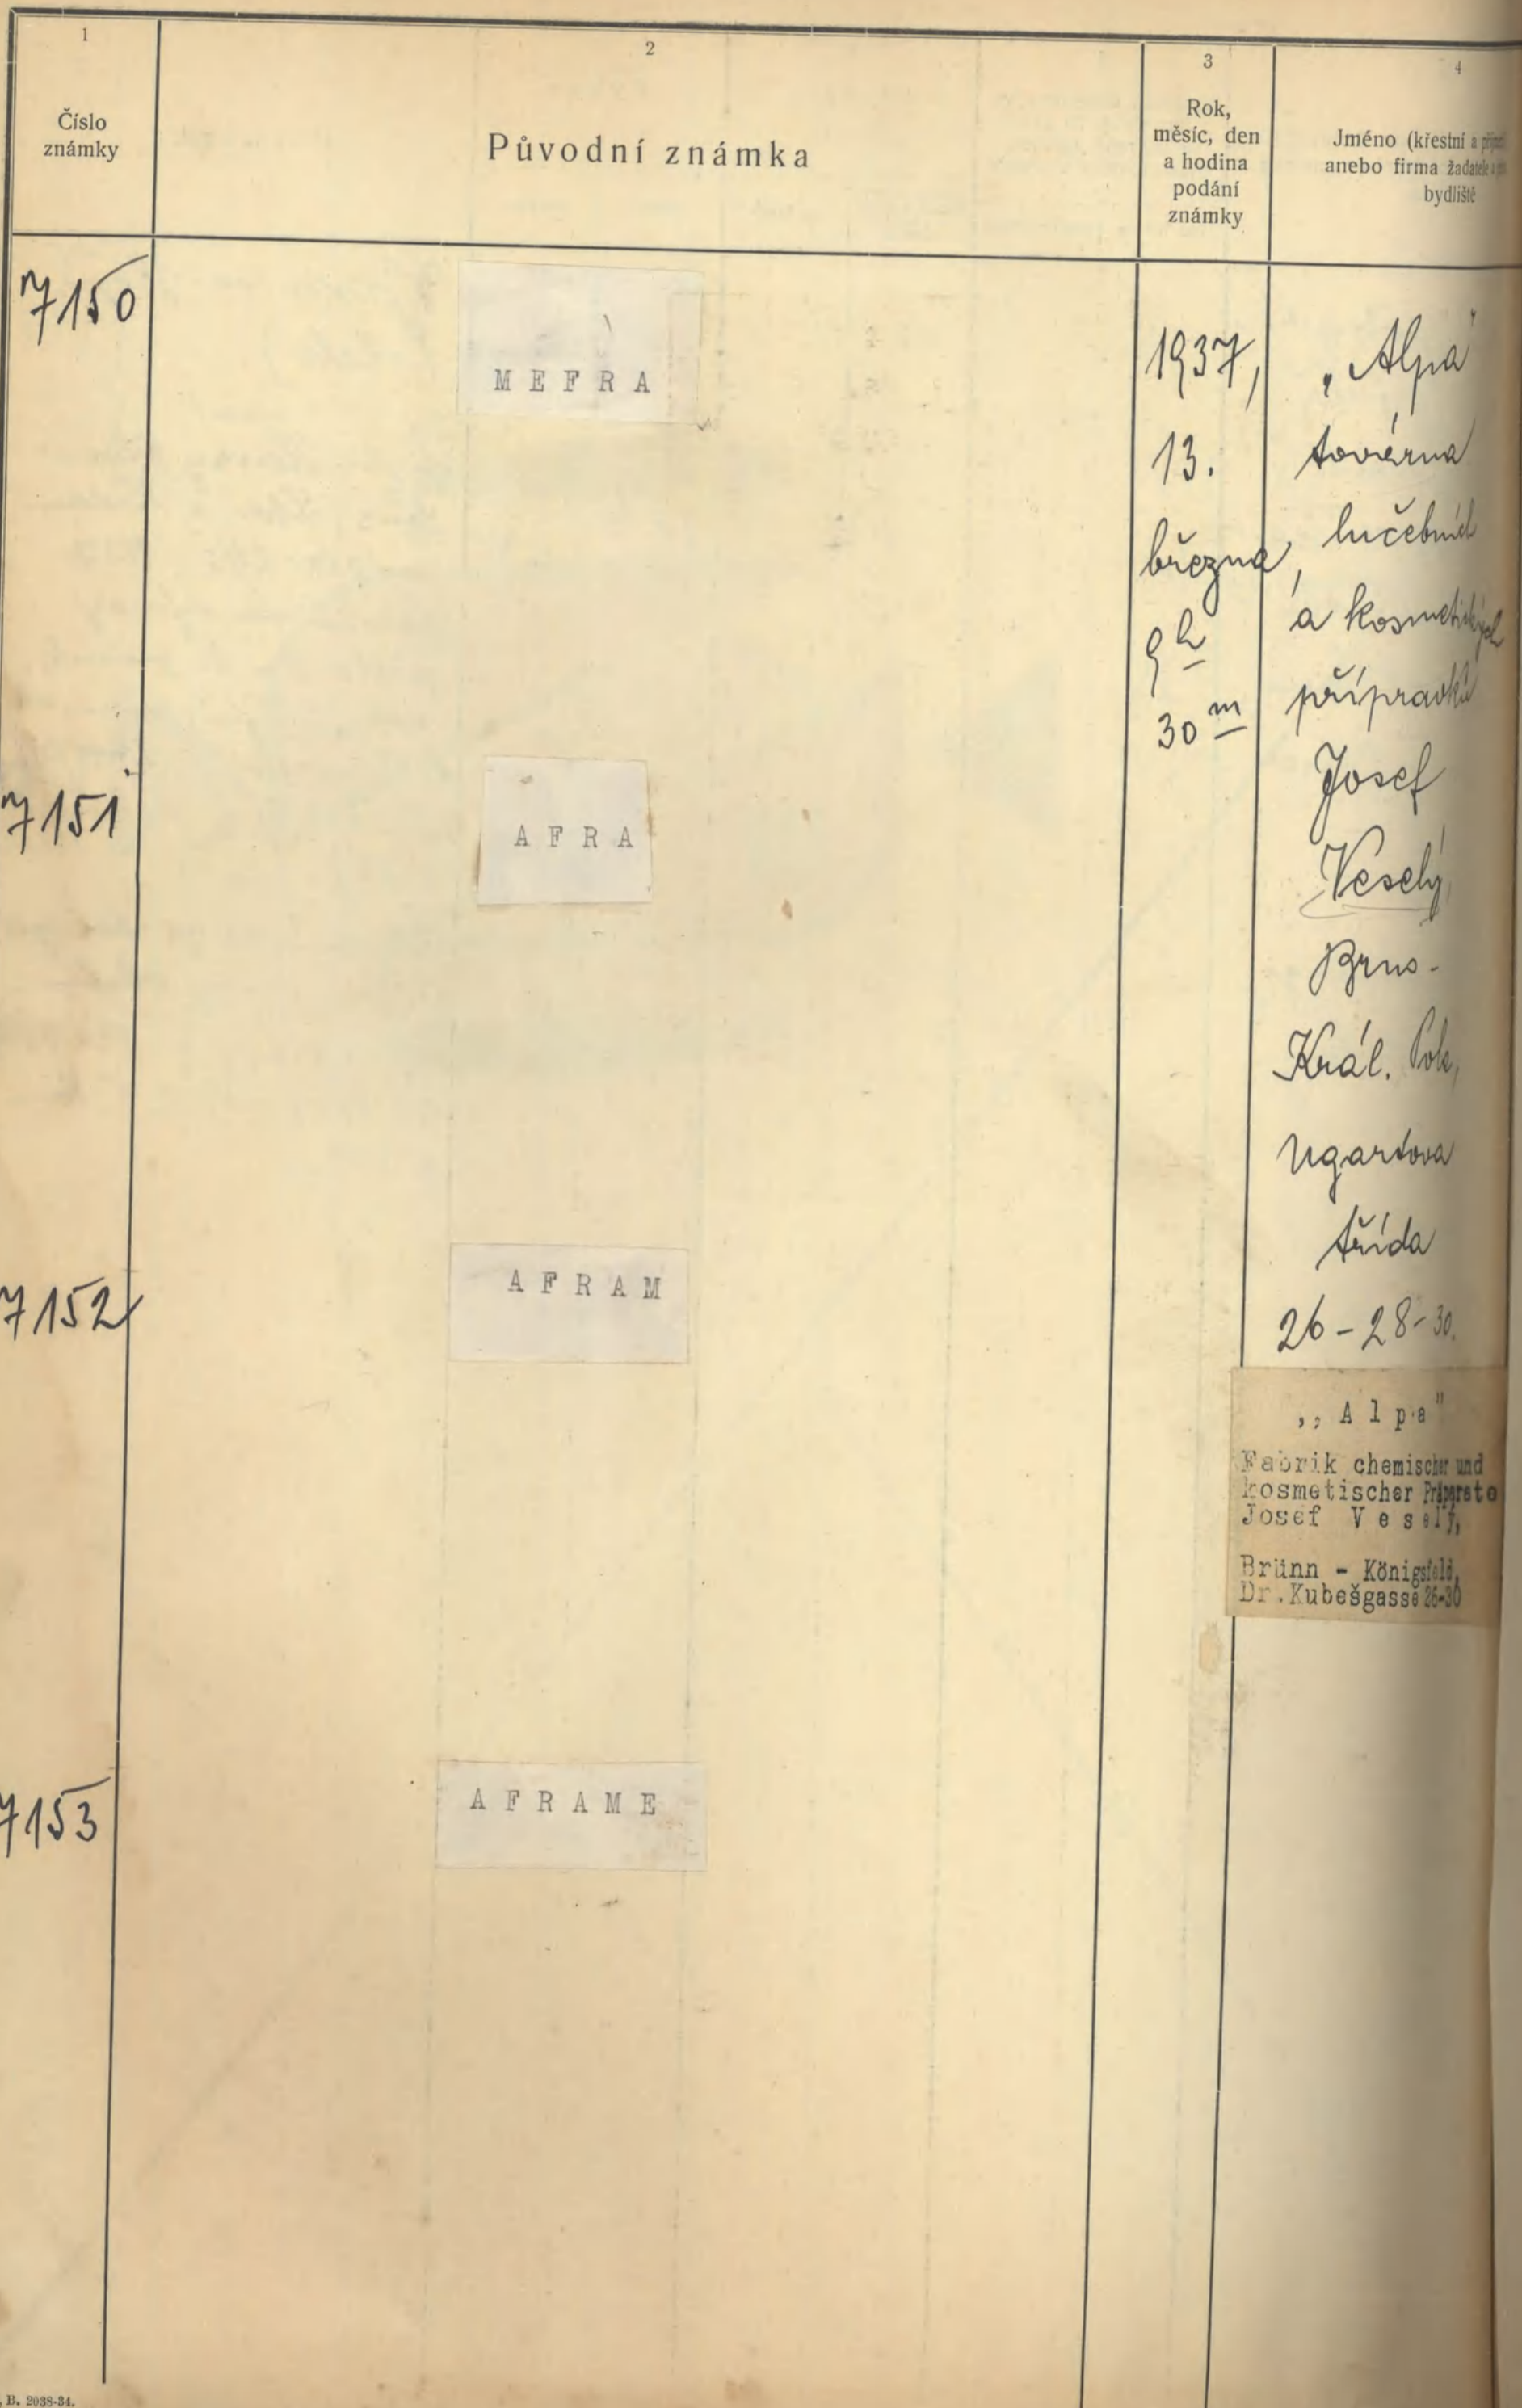 1
Číslo
známky
2
Původní známka
3
Rok,
měsíc, den
a hodina
podání
známky
4
Jméno (křestní a
anebo firma žadatele
bydliště
7150
MEFRA
1937,
13.
března,
9 h
30 m
„Alpa"
továrna
lučebních
a kosmetických
přípravků
Josef
Veselý,
Brno-
Král. Pole,
Ugartova
třída
26-28-30.
7151
AFRA
7152
AFRAM
„Alpa"
Fabrik chemischer und
kosmetischer Präparate
Josef Veselý,
Brünn - Königsfeld,
Dr. Kubešgasse 26-30
7153
AFRAME
B. 2038-34.